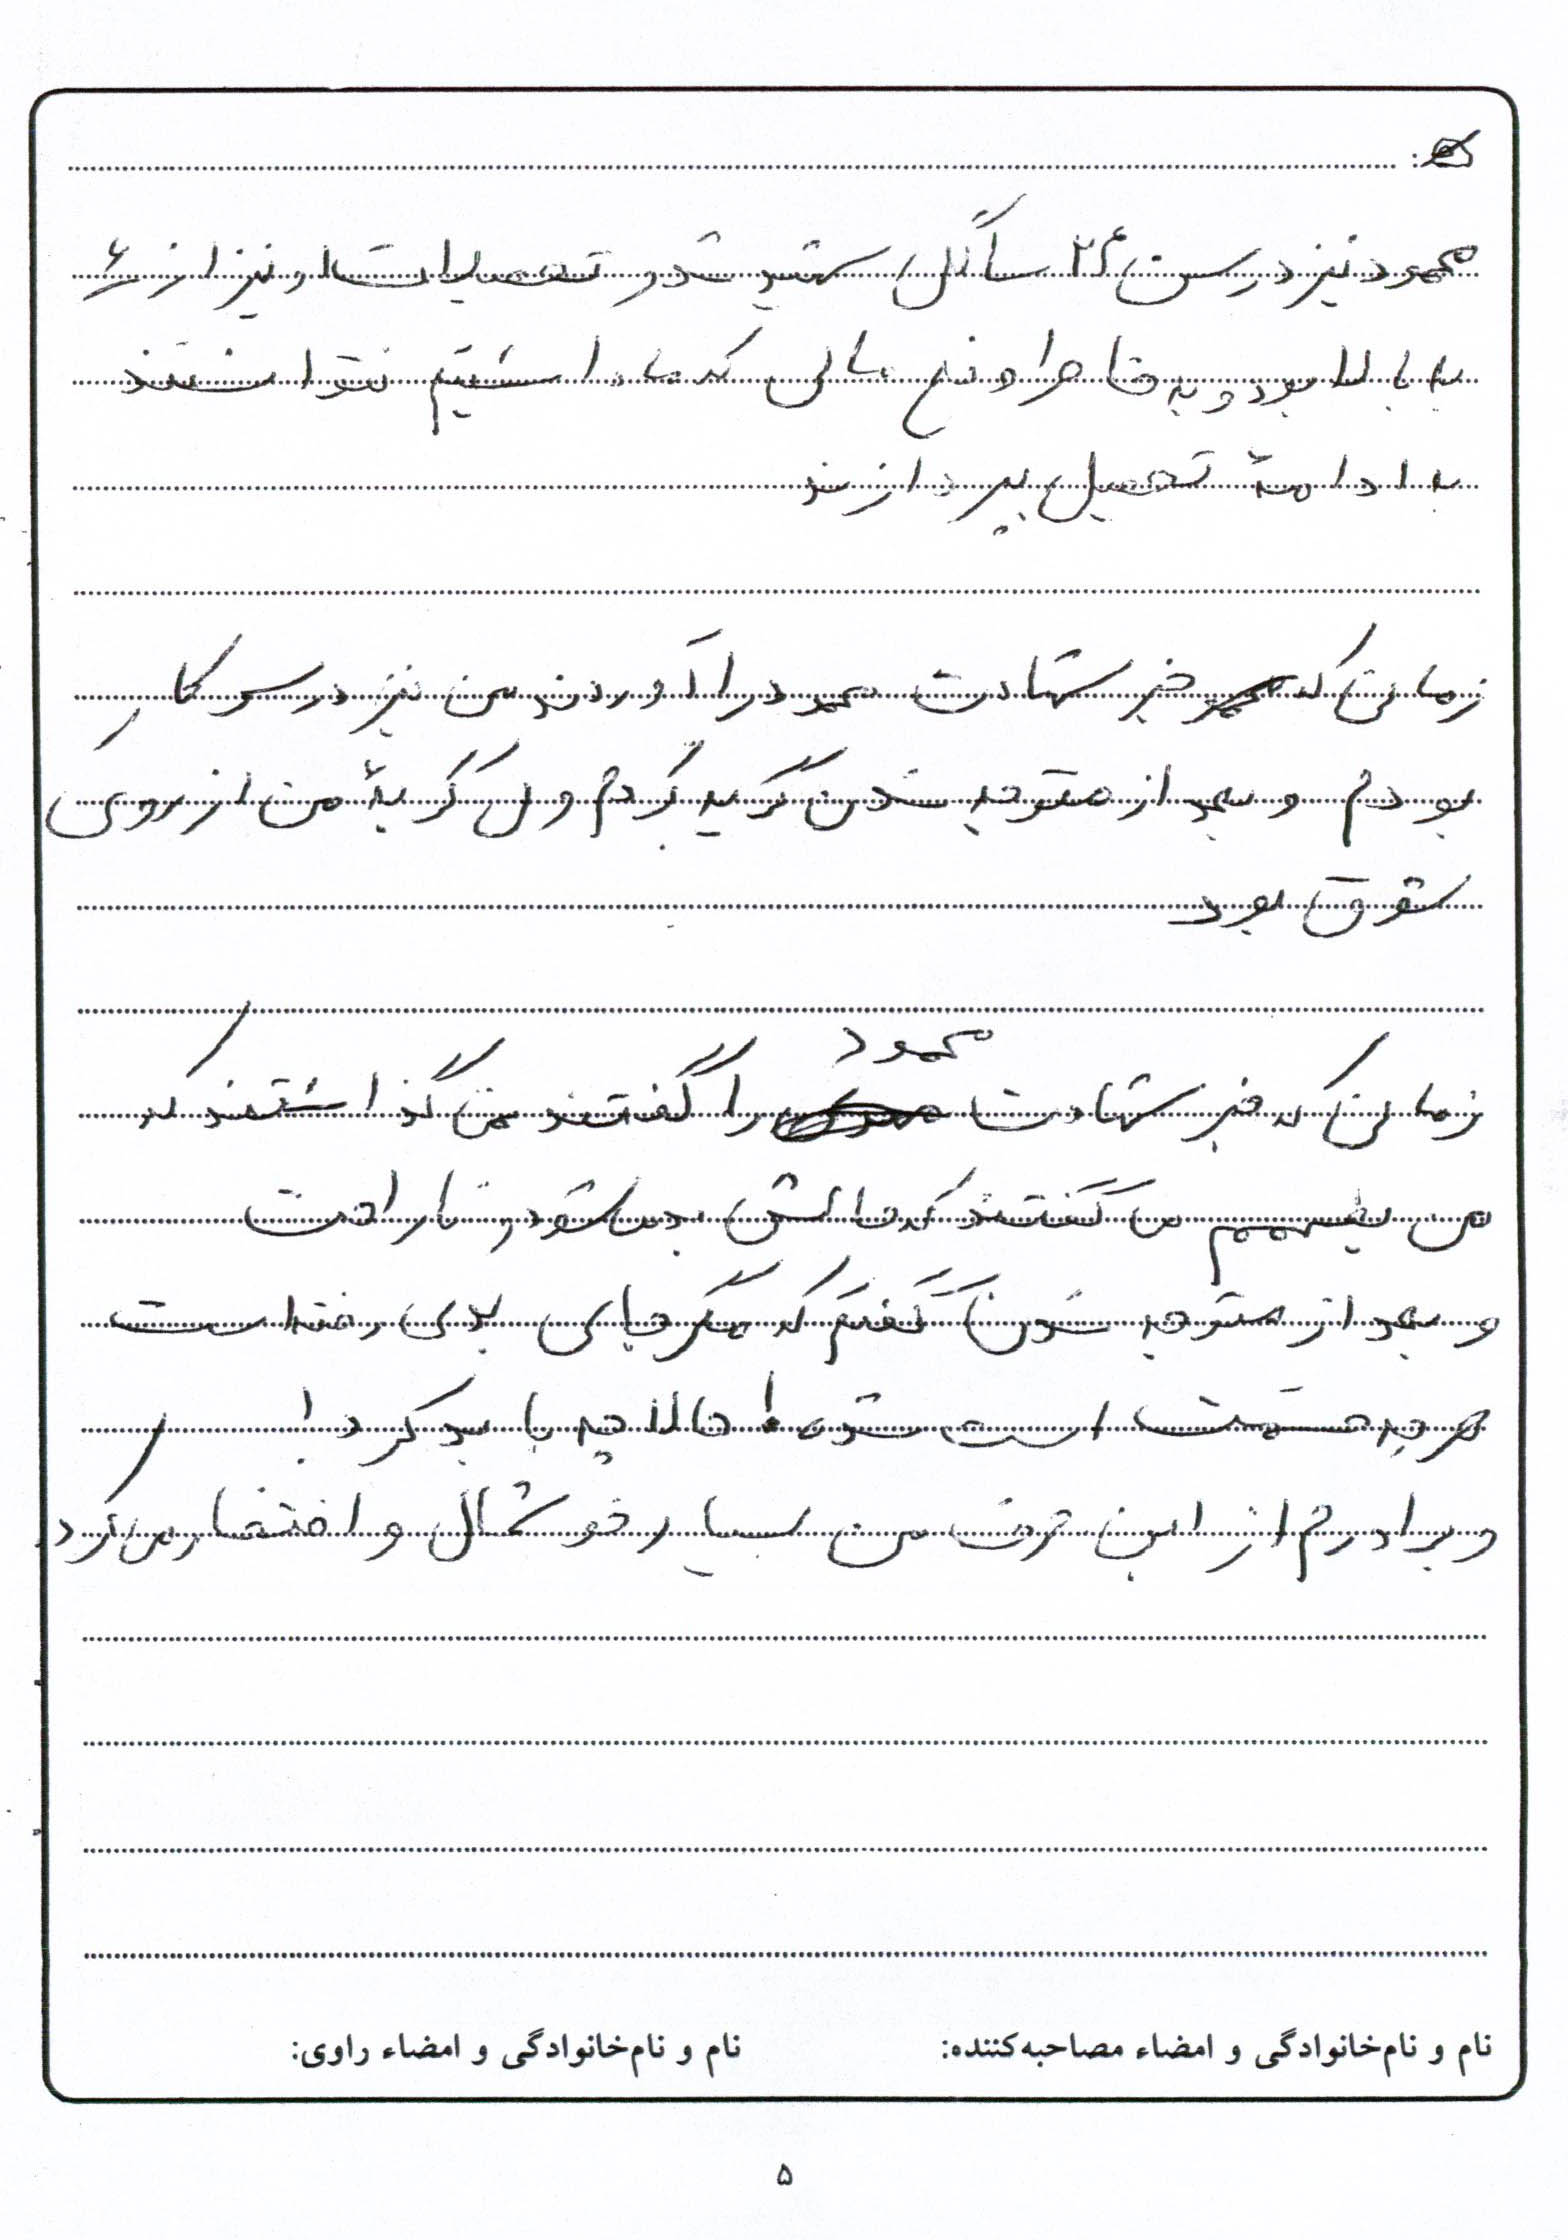 محمود نیز در سن ۲۶ سالگی شهید شد و تحصیلات او نیز از ۶
به بالا بود و به خاطر اوضاع مالی که ما داشتیم نتوانستند
به ادامهٔ تحصیل بپردازند
زمانی که خبر شهادت محمود را آوردند من نیز در سر کار
بودم و بعد از متوجه شدن گریه کردم ولی گریهٔ من از روی
شوق بود
محمود
زمانی که خبر شهادت را گفتند نمی گذاشتند که
من بفهمم می گفتند که حالش بد می شود و ناراحت
و بعد از متوجه شدن گفتم که مگر جای بدی رفته است
هر چه قسمت است شده حالا چه باید کرد
و برادرم از این حرف من بسیار خوشحال و افتخار می کرد
نام و نام‌خانوادگی و امضاء مصاحبه‌کننده: نام و نام‌خانوادگی و امضاء راوی:
۵